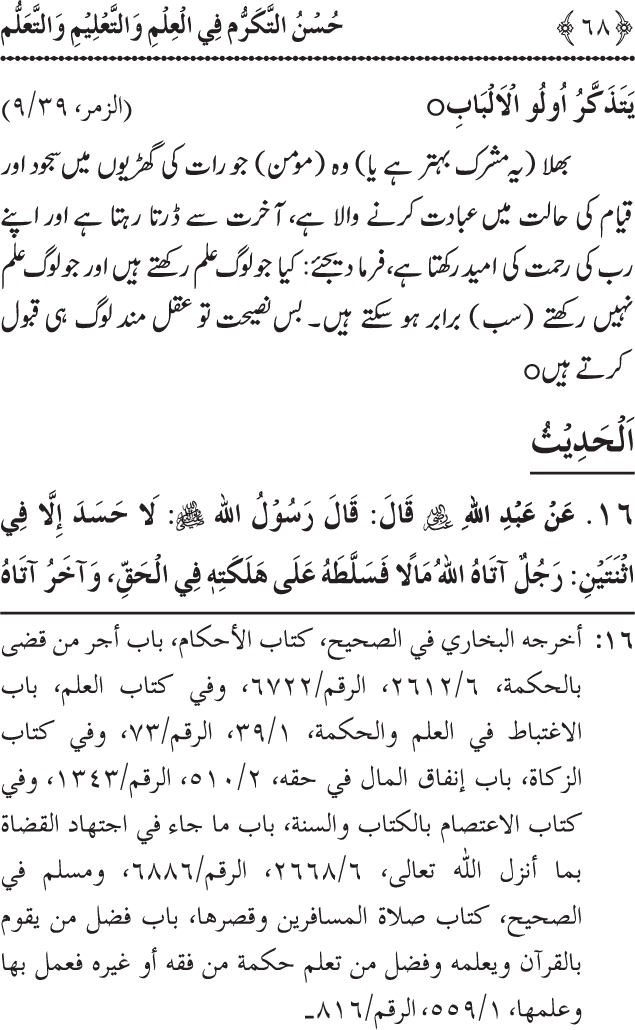 ﴿٦٨﴾ حُسْنُ التَّكَرُّم فِي الْعِلْمِ وَالتَّعْلِيْمِ وَالتَّعَلُّم
يَتَذَكَّرُ اُولُو الْاَلْبَابِ○ (الزمر، ٩/٣٩)
بھلا (یہ مشرک بہتر ہے یا) وہ (مومن) جو رات کی گھڑیوں میں سجود اور
قیام کی حالت میں عبادت کرنے والا ہے، آخرت سے ڈرتا رہتا ہے اور اپنے
رب کی رحمت کی امید رکھتا ہے، فرما دیجئے: کیا جو لوگ علم رکھتے ہیں اور جو لوگ علم
نہیں رکھتے (سب) برابر ہو سکتے ہیں۔ بس نصیحت تو عقل مند لوگ ہی قبول
کرتے ہیں○
اَلْحَدِيْثُ
١٦. عَنْ عَبْدِ اللهِ ﷺ قَالَ: قَالَ رَسُوْلُ الله ﷺ: لَا حَسَدَ إِلَّا فِي
اثْنَتَيْنِ: رَجُلٌ آتَاهُ اللهُ مَالًا فَسَلَّطَهُ عَلَى هَلَكَتِهِ فِي الْحَقِّ، وَآخَرُ آتَاهُ
١٦: أخرجه البخاري في الصحيح، كتاب الأحكام، باب أجر من قضى
بالحكمة، ٢٦١٢/٦، الرقم/٦٧٢٢، وفي كتاب العلم، باب
الاغتباط في العلم والحكمة، ٣٩/١، الرقم/٧٣، وفي كتاب
الزكاة، باب إنفاق المال في حقه، ٥١٠/٢، الرقم/١٣٤٣، وفي
كتاب الاعتصام بالكتاب والسنة، باب ما جاء في اجتهاد القضاة
بما أنزل الله تعالى، ٢٦٦٨/٦، الرقم/٦٨٨٦، ومسلم في
الصحيح، كتاب صلاة المسافرين وقصرها، باب فضل من يقوم
بالقرآن ويعلمه وفضل من تعلم حكمة من فقه أو غيره فعمل بها
وعلمها، ٥٥٩/١، الرقم/٨١٦۔